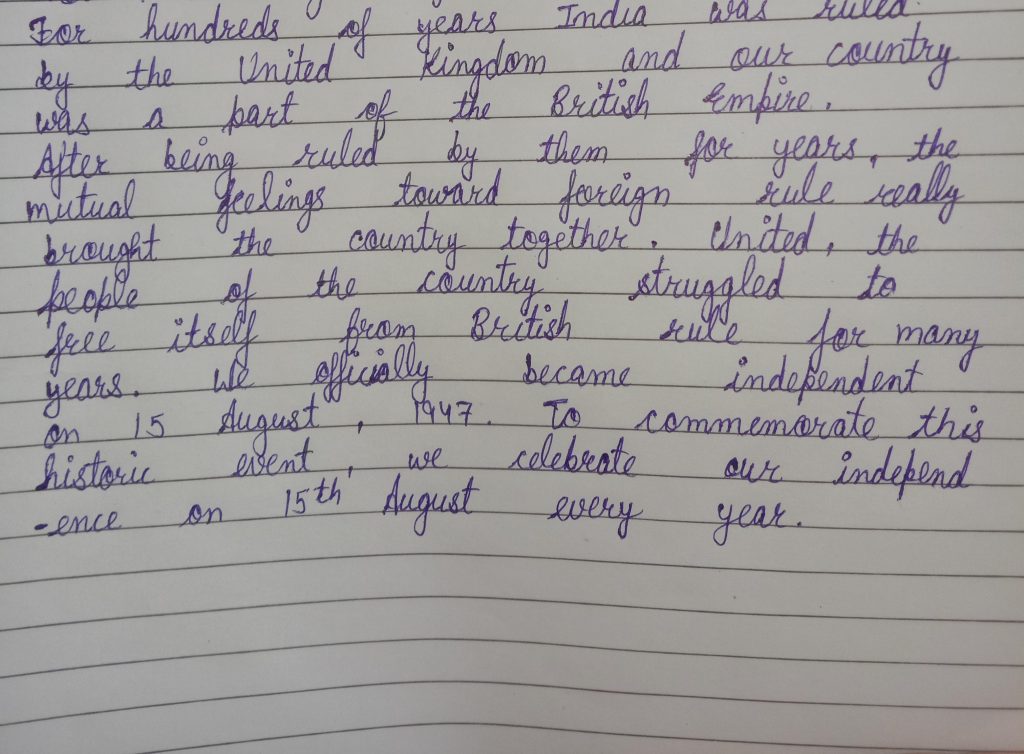 For hundreds of years India was ruled
by the United Kingdom and our country
was a part of the British Empire.
After being ruled by them for years, the
mutual feelings toward foreign rule really
brought the country together. United, the
people of the country struggled to
free itself from British rule for many
years. We officially became independent
on 15 August, 1947. To commemorate this
historic event, we celebrate our independ
-ence on 15th August every year.